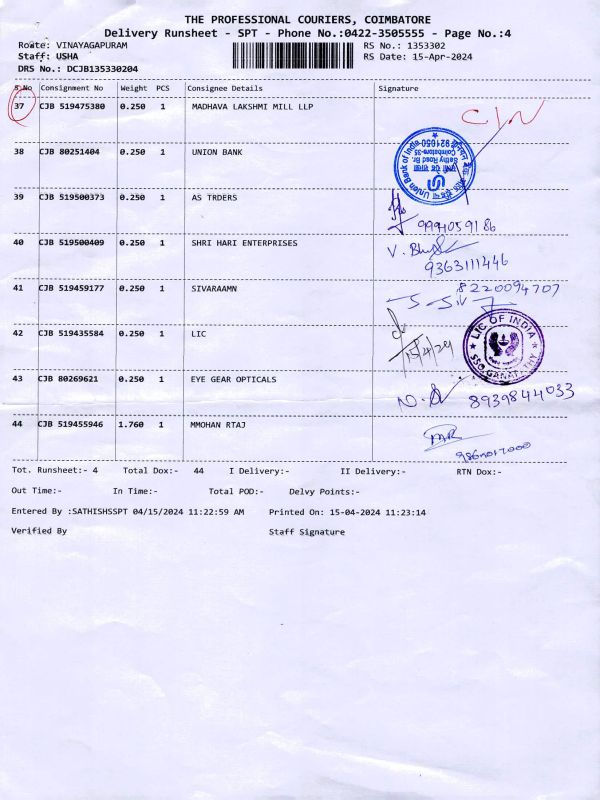 THE PROFESSIONAL COURIERS, COIMBATORE
Delivery Runsheet - SPT - Phone No.:0422-3505555 - Page No.:4
Route: VINAYAGAPURAM RS No.: 1353302
Staff: USHA RS Date: 15-Apr-2024
DRS No.: DCJB135330204
S No Consignment No Weight PCS Consignee Details Signature
37 CJB 519475380 0.250 1 MADHAVA LAKSHMI MILL LLP
38 CJB 80251404 0.250 1 UNION BANK
Union Bank of India
Sathy Road Br.
Coimbatore-35
921050
39 CJB 519500373 0.250 1 AS TRDERS
9994059186
40 CJB 519500409 0.250 1 SHRI HARI ENTERPRISES
9363111446
41 CJB 519459177 0.250 1 SIVARAAMN
8220094707
42 CJB 519435584 0.250 1 LIC
15/4/24
LIC OF INDIA
SSO GANAPATHY
43 CJB 80269621 0.250 1 EYE GEAR OPTICALS
8939844033
44 CJB 519455946 1.760 1 MMOHAN RTAJ
Tot. Runsheet:- 4 Total Dox:- 44 I Delivery:- II Delivery:- RTN Dox:-
Out Time:- In Time:- Total POD:- Delvy Points:-
Entered By :SATHISHSSPT 04/15/2024 11:22:59 AM Printed On: 15-04-2024 11:23:14
Verified By Staff Signature